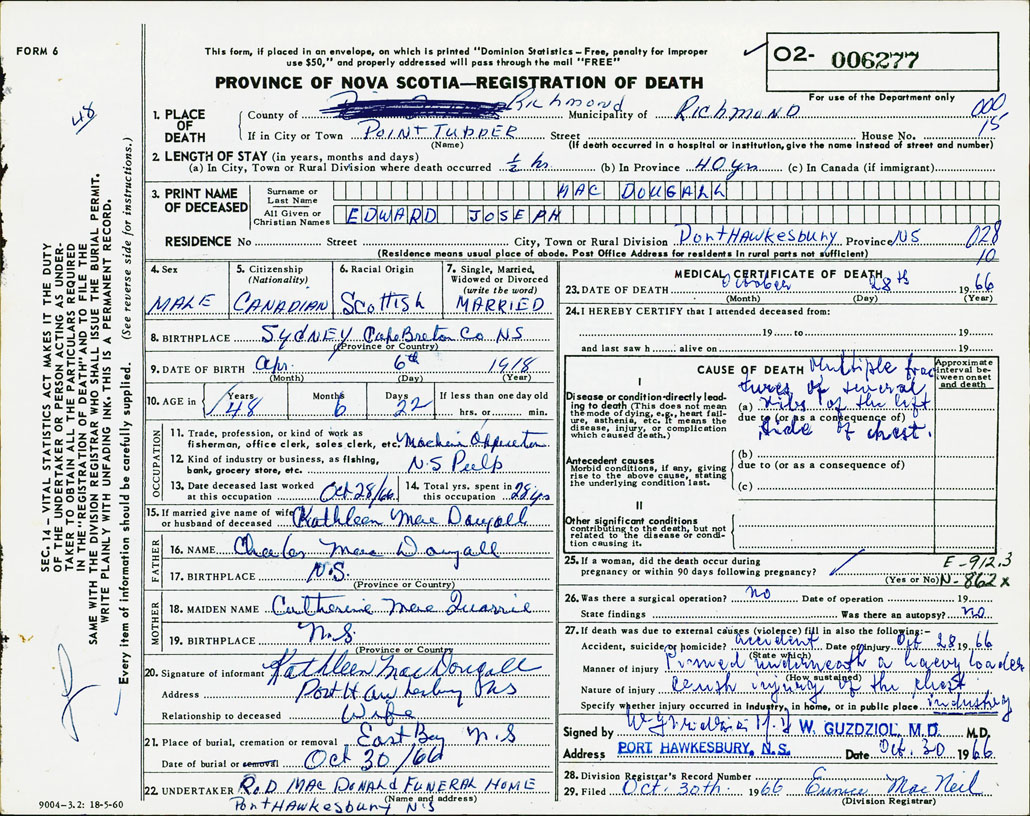 FORM 6
This form, if placed in an envelope, on which is printed "Dominion Statistics – Free, penalty for improper
use $50," and properly addressed will pass through the mail "FREE"
✓ O2- 006277
PROVINCE OF NOVA SCOTIA—REGISTRATION OF DEATH
For use of the Department only
48
SEC. 14 – VITAL STATISTICS ACT MAKES IT THE DUTY
OF THE UNDERTAKER OR PERSON ACTING AS UNDER-
TAKER TO OBTAIN ALL THE PARTICULARS REQUIRED
IN THE "REGISTRATION OF DEATH" AND TO FILE THE
SAME WITH THE DIVISION REGISTRAR WHO SHALL ISSUE THE BURIAL PERMIT.
WRITE PLAINLY WITH UNFADING INK. THIS IS A PERMANENT RECORD.
Every item of information should be carefully supplied. (See reverse side for instructions.)
1. PLACE OF DEATH
County of Richmond Municipality of Richmond 000
If in City or Town POINT TUPPER Street House No. 15
(Name) (If death occurred in a hospital or institution, give the name instead of street and number)
2. LENGTH OF STAY (in years, months and days)
(a) In City, Town or Rural Division where death occurred ½ hr. (b) In Province 40 yrs (c) In Canada (if immigrant)
3. PRINT NAME OF DECEASED
Surname or Last Name MAC DOUGALL
All Given or Christian Names EDWARD JOSEPH
RESIDENCE No Street City, Town or Rural Division Port Hawkesbury Province NS 028
(Residence means usual place of abode. Post Office Address for residents in rural parts not sufficient) 10
4. Sex MALE
5. Citizenship (Nationality) CANADIAN
6. Racial Origin Scottish
7. Single, Married, Widowed or Divorced (write the word) MARRIED
8. BIRTHPLACE Sydney Cape Breton Co NS
(Province or Country)
9. DATE OF BIRTH Apr. 6th 1918
(Month) (Day) (Year)
10. AGE in Years 48 Months 6 Days 22 If less than one day old hrs. or min.
OCCUPATION
11. Trade, profession, or kind of work as
fisherman, office clerk, sales clerk, etc.
12. Kind of industry or business, as fishing,
bank, grocery store, etc. N.S Pulp
13. Date deceased last worked
at this occupation Oct 28/66
14. Total yrs. spent in
this occupation 28 yrs
15. If married give name of wife
or husband of deceased Kathleen Mac Dougall
FATHER
16. NAME Charles Mac Dougall
17. BIRTHPLACE N.S.
(Province or Country)
MOTHER
18. MAIDEN NAME Catherine Mac Quarrie
19. BIRTHPLACE N.S.
(Province or Country)
20. Signature of informant Kathleen MacDougall
Address Port Hawkesbury NS
Relationship to deceased Wife
21. Place of burial, cremation or removal East Bay N.S
Date of burial or removal Oct 30/66
22 UNDERTAKER R.D. MAC DONALD FUNERAL HOME
(Name and address)
PORT HAWKESBURY N.S
9004-3.2: 18-5-60
MEDICAL CERTIFICATE OF DEATH
23. DATE OF DEATH October 28th 1966
(Month) (Day) (Year)
24. I HEREBY CERTIFY that I attended deceased from:
19 to 19
and last saw h alive on 19
CAUSE OF DEATH
Approximate interval between onset and death
I
Disease or condition directly lead-
ing to death (This does not mean
the mode of dying, e.g., heart fail-
ure, asthenia, etc. It means the
disease, injury, or complication
which caused death.)
Multiple frac
tures of several
(a) ribs of the left
due to (or as a consequence of)
side of chest.
Antecedent causes
Morbid conditions, if any, giving
rise to the above cause, stating
the underlying condition last.
(b)
due to (or as a consequence of)
(c)
II
Other significant conditions
contributing to the death, but not
related to the disease or condi-
tion causing it.
25. If a woman, did the death occur during
pregnancy or within 90 days following pregnancy? ✓ E-912.3
(Yes or No) N-862x
26. Was there a surgical operation? no Date of operation 19
State findings Was there an autopsy? no
27. If death was due to external causes (violence) fill in also the following:–
Accident, suicide or homicide? accident Date of injury Oct 28 1966
(State which)
Manner of injury Pinned underneath a heavy loader
(How sustained)
Nature of injury crush injury of the chest
Specify whether injury occurred in industry, in home, or in public place industry
Signed by W. GUZDZIOL, M.D. M.D.
Address PORT HAWKESBURY, N.S. Date Oct. 30 1966
28. Division Registrar's Record Number
29. Filed Oct. 30th. 1966 Eunice MacNeil
(Division Registrar)